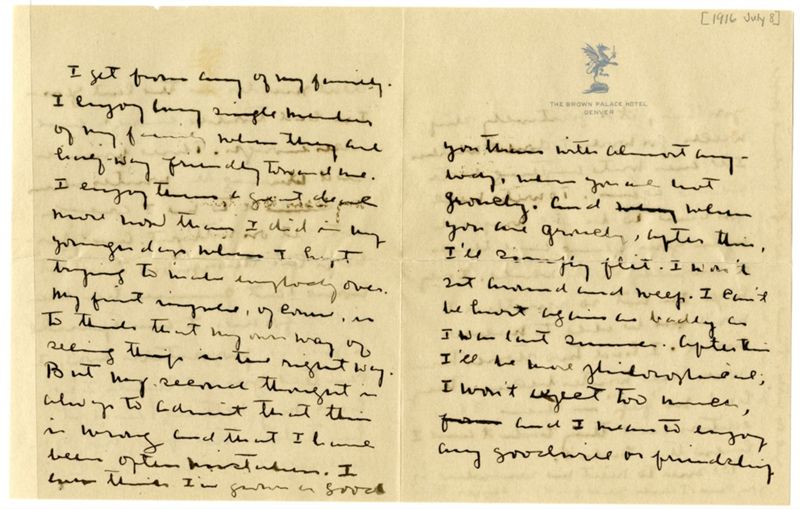 [1916 July 8]
THE BROWN PALACE HOTEL
DENVER
you than with almost any-
body, when you are not
grouchy. And when
you are grouchy, after this,
I'll simply flit. I won't
sit around and weep. I can't
be hurt again as badly as
I was last summer. After this
I'll be more philosophical;
I won't expect too much,
and I mean to enjoy
any goodwill or friendship
I get from any of my family.
I enjoy every single member
of my family when they are
half-way friendly toward me.
I enjoy them a great deal
more now than I did in my
younger days when I kept
trying to make everybody over.
My first impulse, of course, is
to think that my own way of
seeing things is the right way.
But my second thought is
always to admit that this
is wrong and that I have
been often mistaken. I
even think I've grown a good